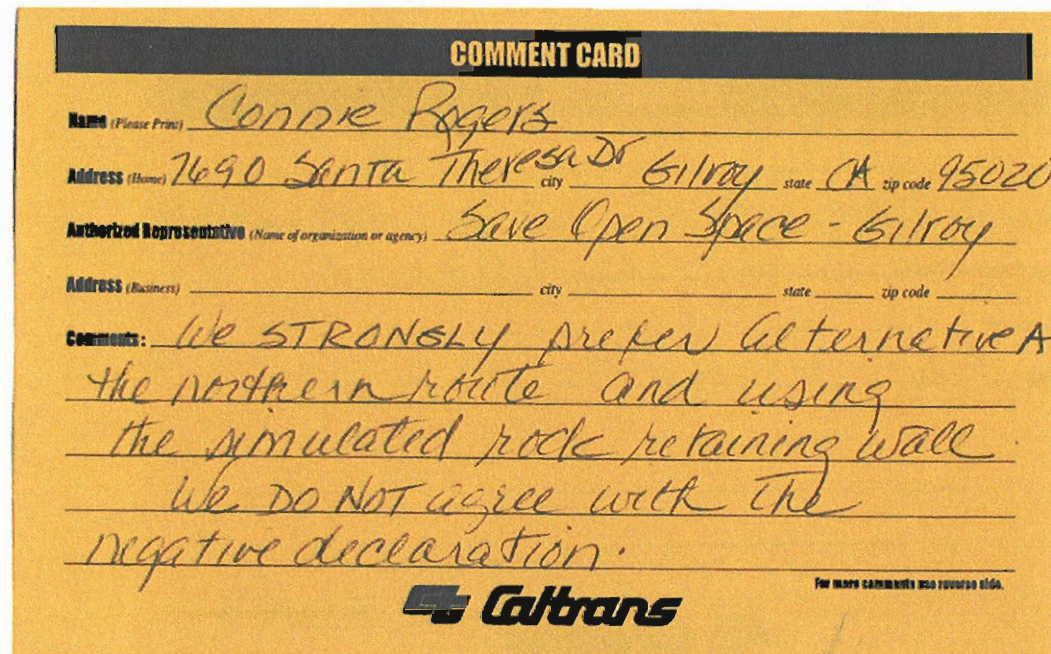 COMMENT CARD
Name (Please Print) Connie Rogers
Address (Home) 7690 Santa Theresa Dr city Gilroy state CA zip code 95020
Authorized Representative (Name of organization or agency) Save Open Space - Gilroy
Address (Business) city state zip code
Comments: We STRONGLY prefer alternative A
the northern route and using
the simulated rock retaining wall
We DO NOT agree with the
negative declaration.
For more comments use reverse side.
Caltrans